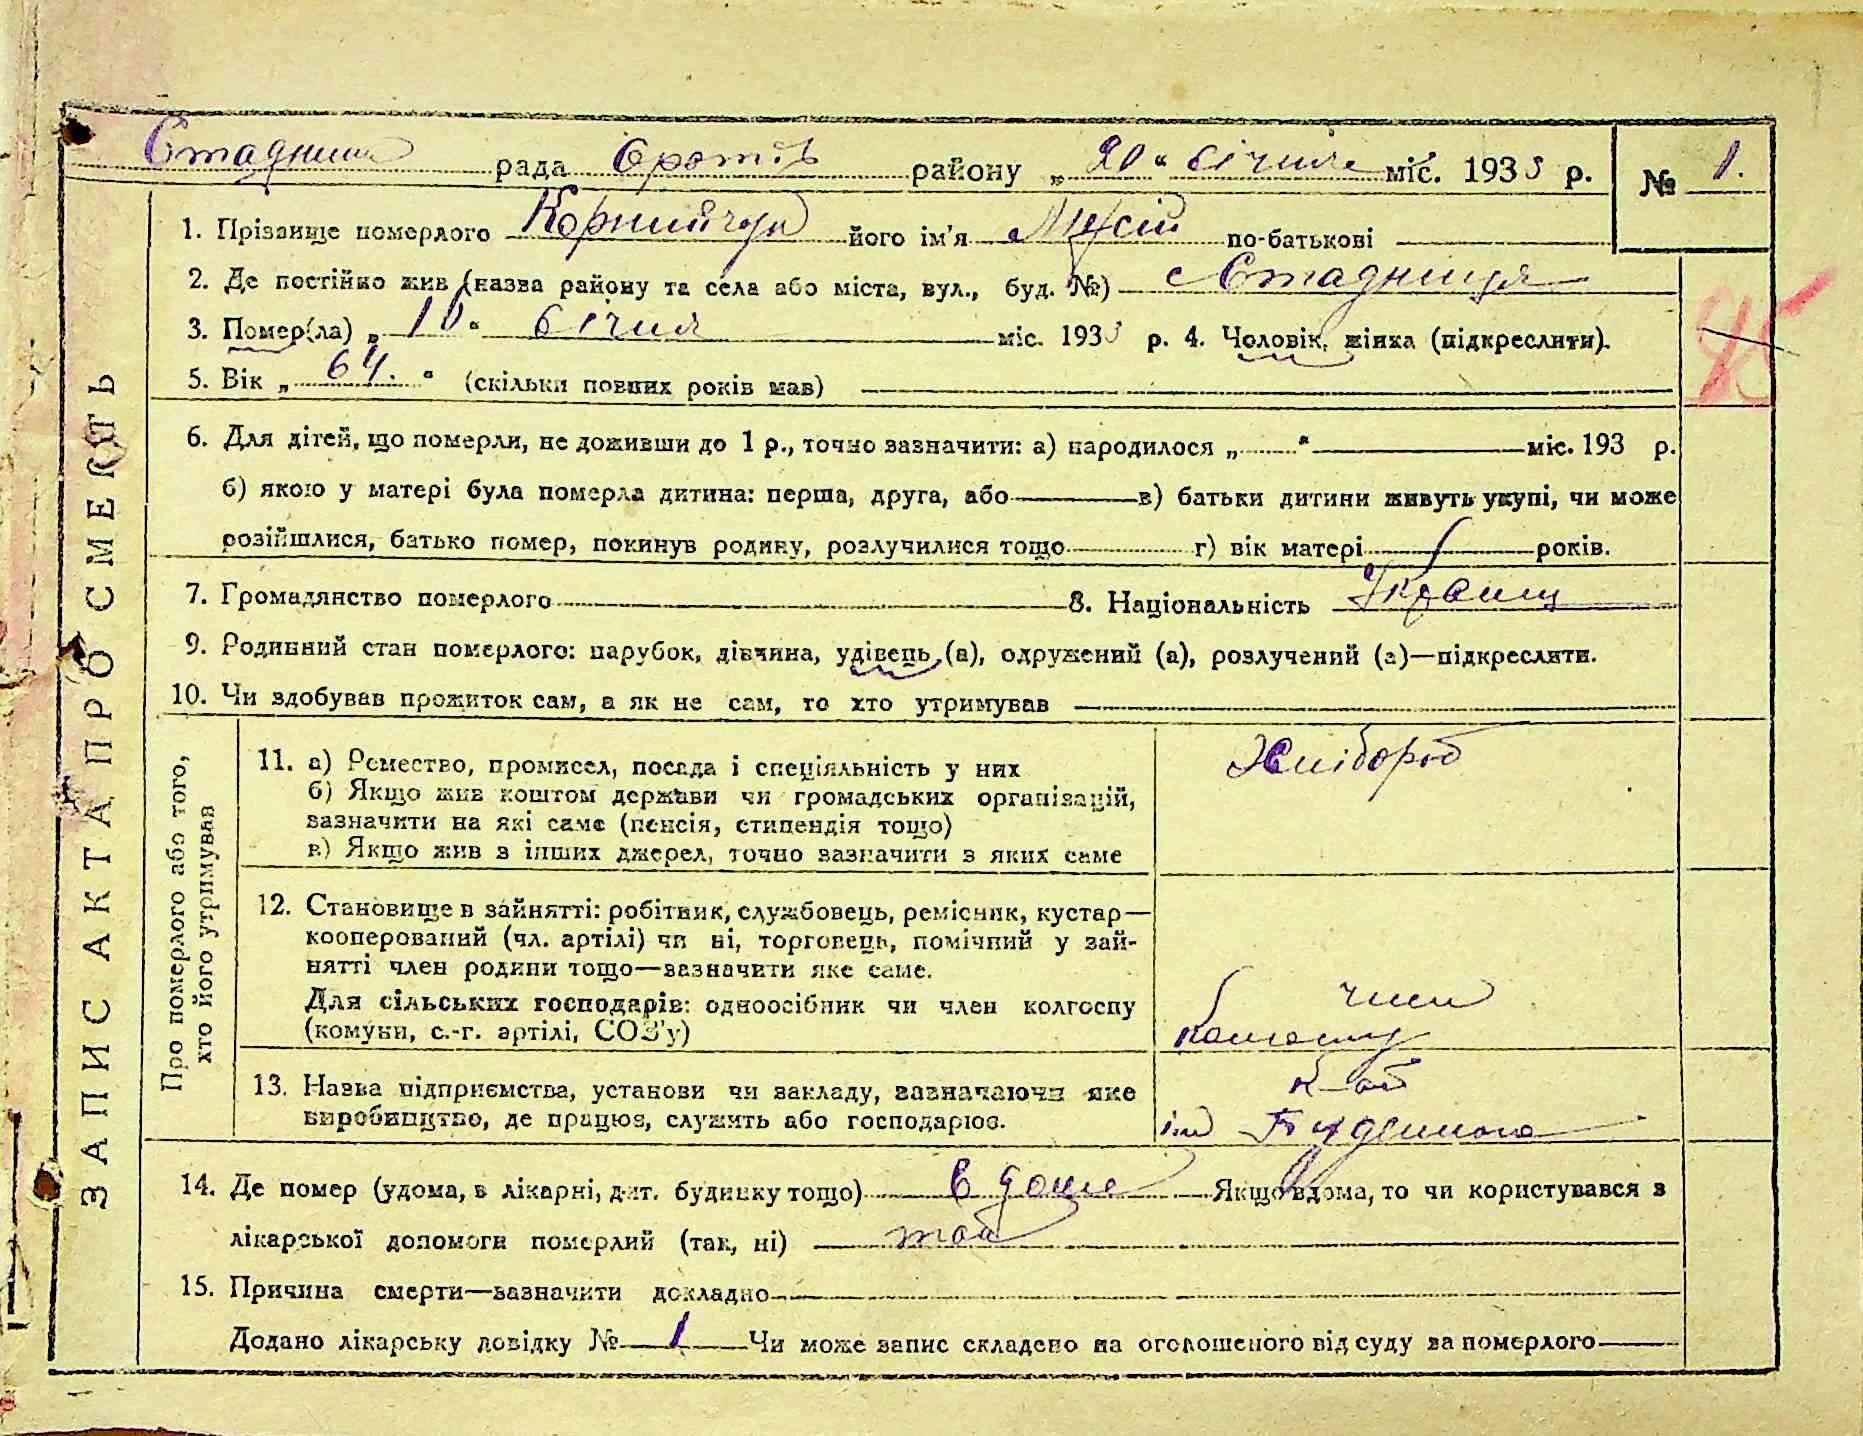 Стадниц рада Оротів району „ 20 “ січня міс. 1933 р. № 1.
1. Прізвище померлого Корнийчук його ім'я Мусій по-батькові
2. Де постійно жив (назва району та села або міста, вул., буд. №) Стадниця
3. Помер(ла) „ 10 “ січня міс. 1933 р. 4. Чоловік, жінка (підкреслити).
45
5. Вік „ 64. “ (скільки повних років мав)
6. Для дітей, що померли, не доживши до 1 р., точно зазначити: а) народилося „ “ міс. 193 р.
б) якою у матері була померла дитина: перша, друга, або в) батьки дитини живуть укупі, чи може
розійшлися, батько помер, покинув родину, розлучилися тощо г) вік матері років.
7. Громадянство померлого 8. Національність Україн
9. Родинний стан померлого: парубок, дівчина, удівець (а), одружений (а), розлучений (а)—підкреслити.
10. Чи здобував прожиток сам, а як не сам, то хто утримував
ЗАПИС АКТА ПРО СМЕРТЬ
Про померлого або того,
хто його утримував
11. а) Ремество, промисел, посада і спеціяльність у них
Хлібороб
б) Якщо жив коштом держави чи громадських організацій,
зазначити на які саме (пенсія, стипендія тощо)
в) Якщо жив з інших джерел, точно зазначити з яких саме
12. Становище в зайнятті: робітник, службовець, ремісник, кустар—
кооперований (чл. артілі) чи ні, торговець, помічний у зай-
нятті член родини тощо—зазначити яке саме.
Для сільських господарів: одноосібник чи член колгоспу
(комуни, с.-г. артілі, СОЗ'у)
член
колгоспу
13. Назва підприємства, установи чи закладу, зазначаючи яке
виробництво, де працює, служить або господарює.
ім Будённого
14. Де помер (удома, в лікарні, дит. будинку тощо) в доме Якщо вдома, то чи користувався з
лікарської допомоги померлий (так, ні) так
15. Причина смерти—зазначити докладно
Додано лікарську довідку № 1 Чи може запис складено на оголошеного від суду за померлого